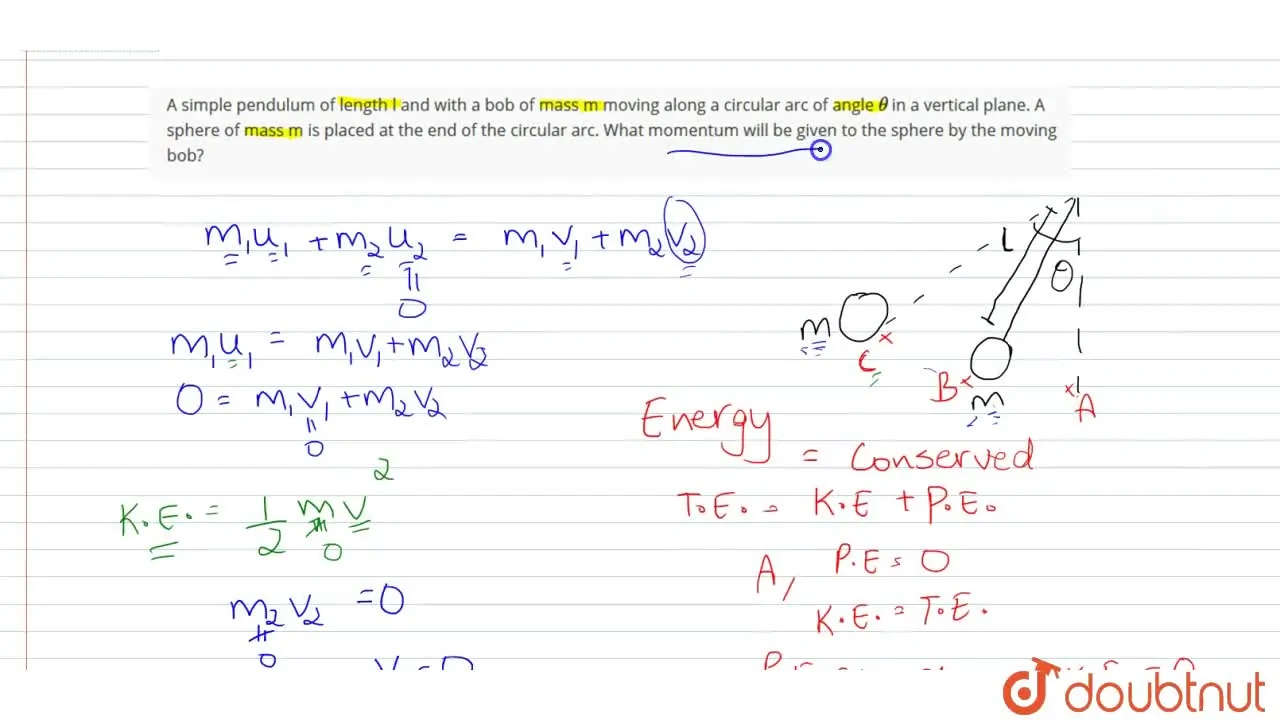 A simple pendulum of length l and with a bob of mass m moving along a circular arc of angle θ in a vertical plane. A
sphere of mass m is placed at the end of the circular arc. What momentum will be given to the sphere by the moving
bob?
m₁u₁ + m₂u₂ = m₁v₁ + m₂v₂
0
m₁u₁ = m₁v₁ + m₂v₂
0 = m₁v₁ + m₂v₂
0
K.E. = 1/2 mv²
0
m₂v₂ = 0
0
L
θ
m
C
B
m
A
Energy
= Conserved
T.E. = K.E + P.E.
A, P.E = 0
K.E. = T.E.
doubtnut